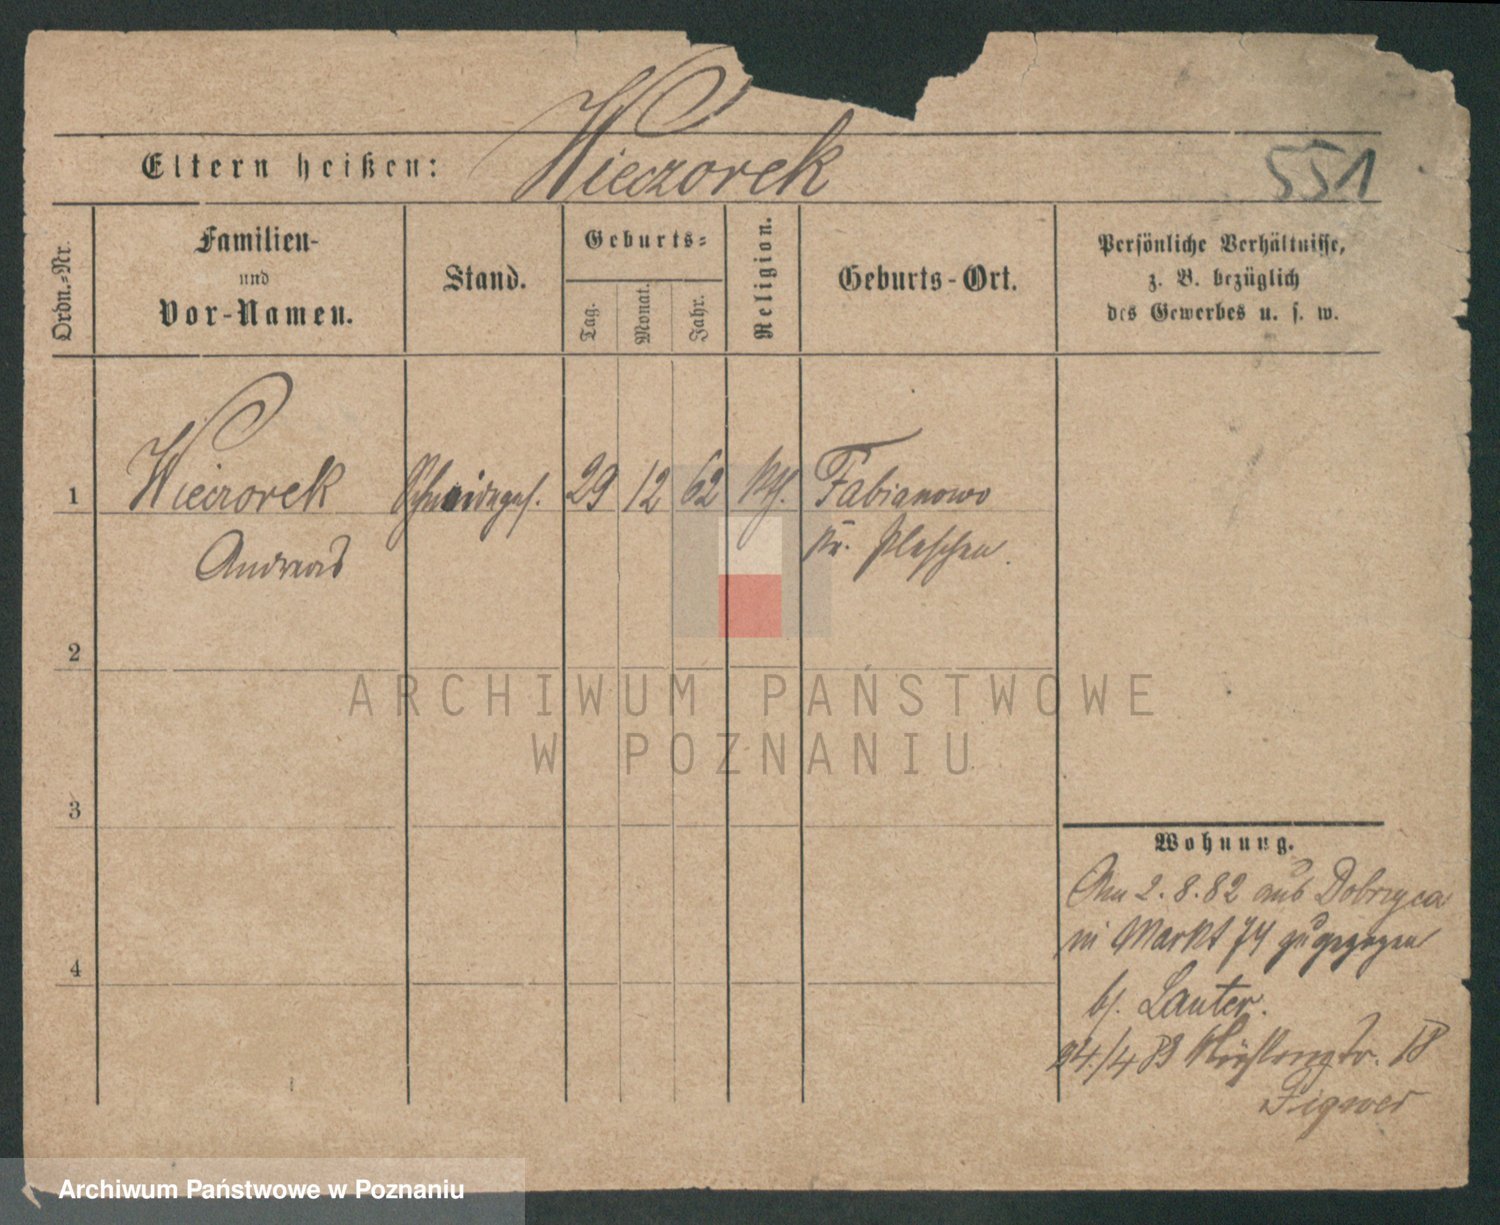 Wieczorek
Eltern heißen:
551
Ordn.-Nr.
Familien-
und
Vor-Namen.
Stand.
Geburts-
Tag.
Monat.
Jahr.
Religion.
Geburts-Ort.
Persönliche Verhältnisse,
z. B. bezüglich
des Gewerbes u. s. w.
1 Wieczorek 29 12 62 kth. Fabianowo
Andreas Kr. Pleschen.
2
ARCHIWUM PAŃSTWOWE
W POZNANIU
3
Wohnung.
Am 2. 8. 82 aus Dobrzyca
in Markt 74 zugezogen
4
b/. Lauter.
24./4 83 18
Archiwum Państwowe w Poznaniu